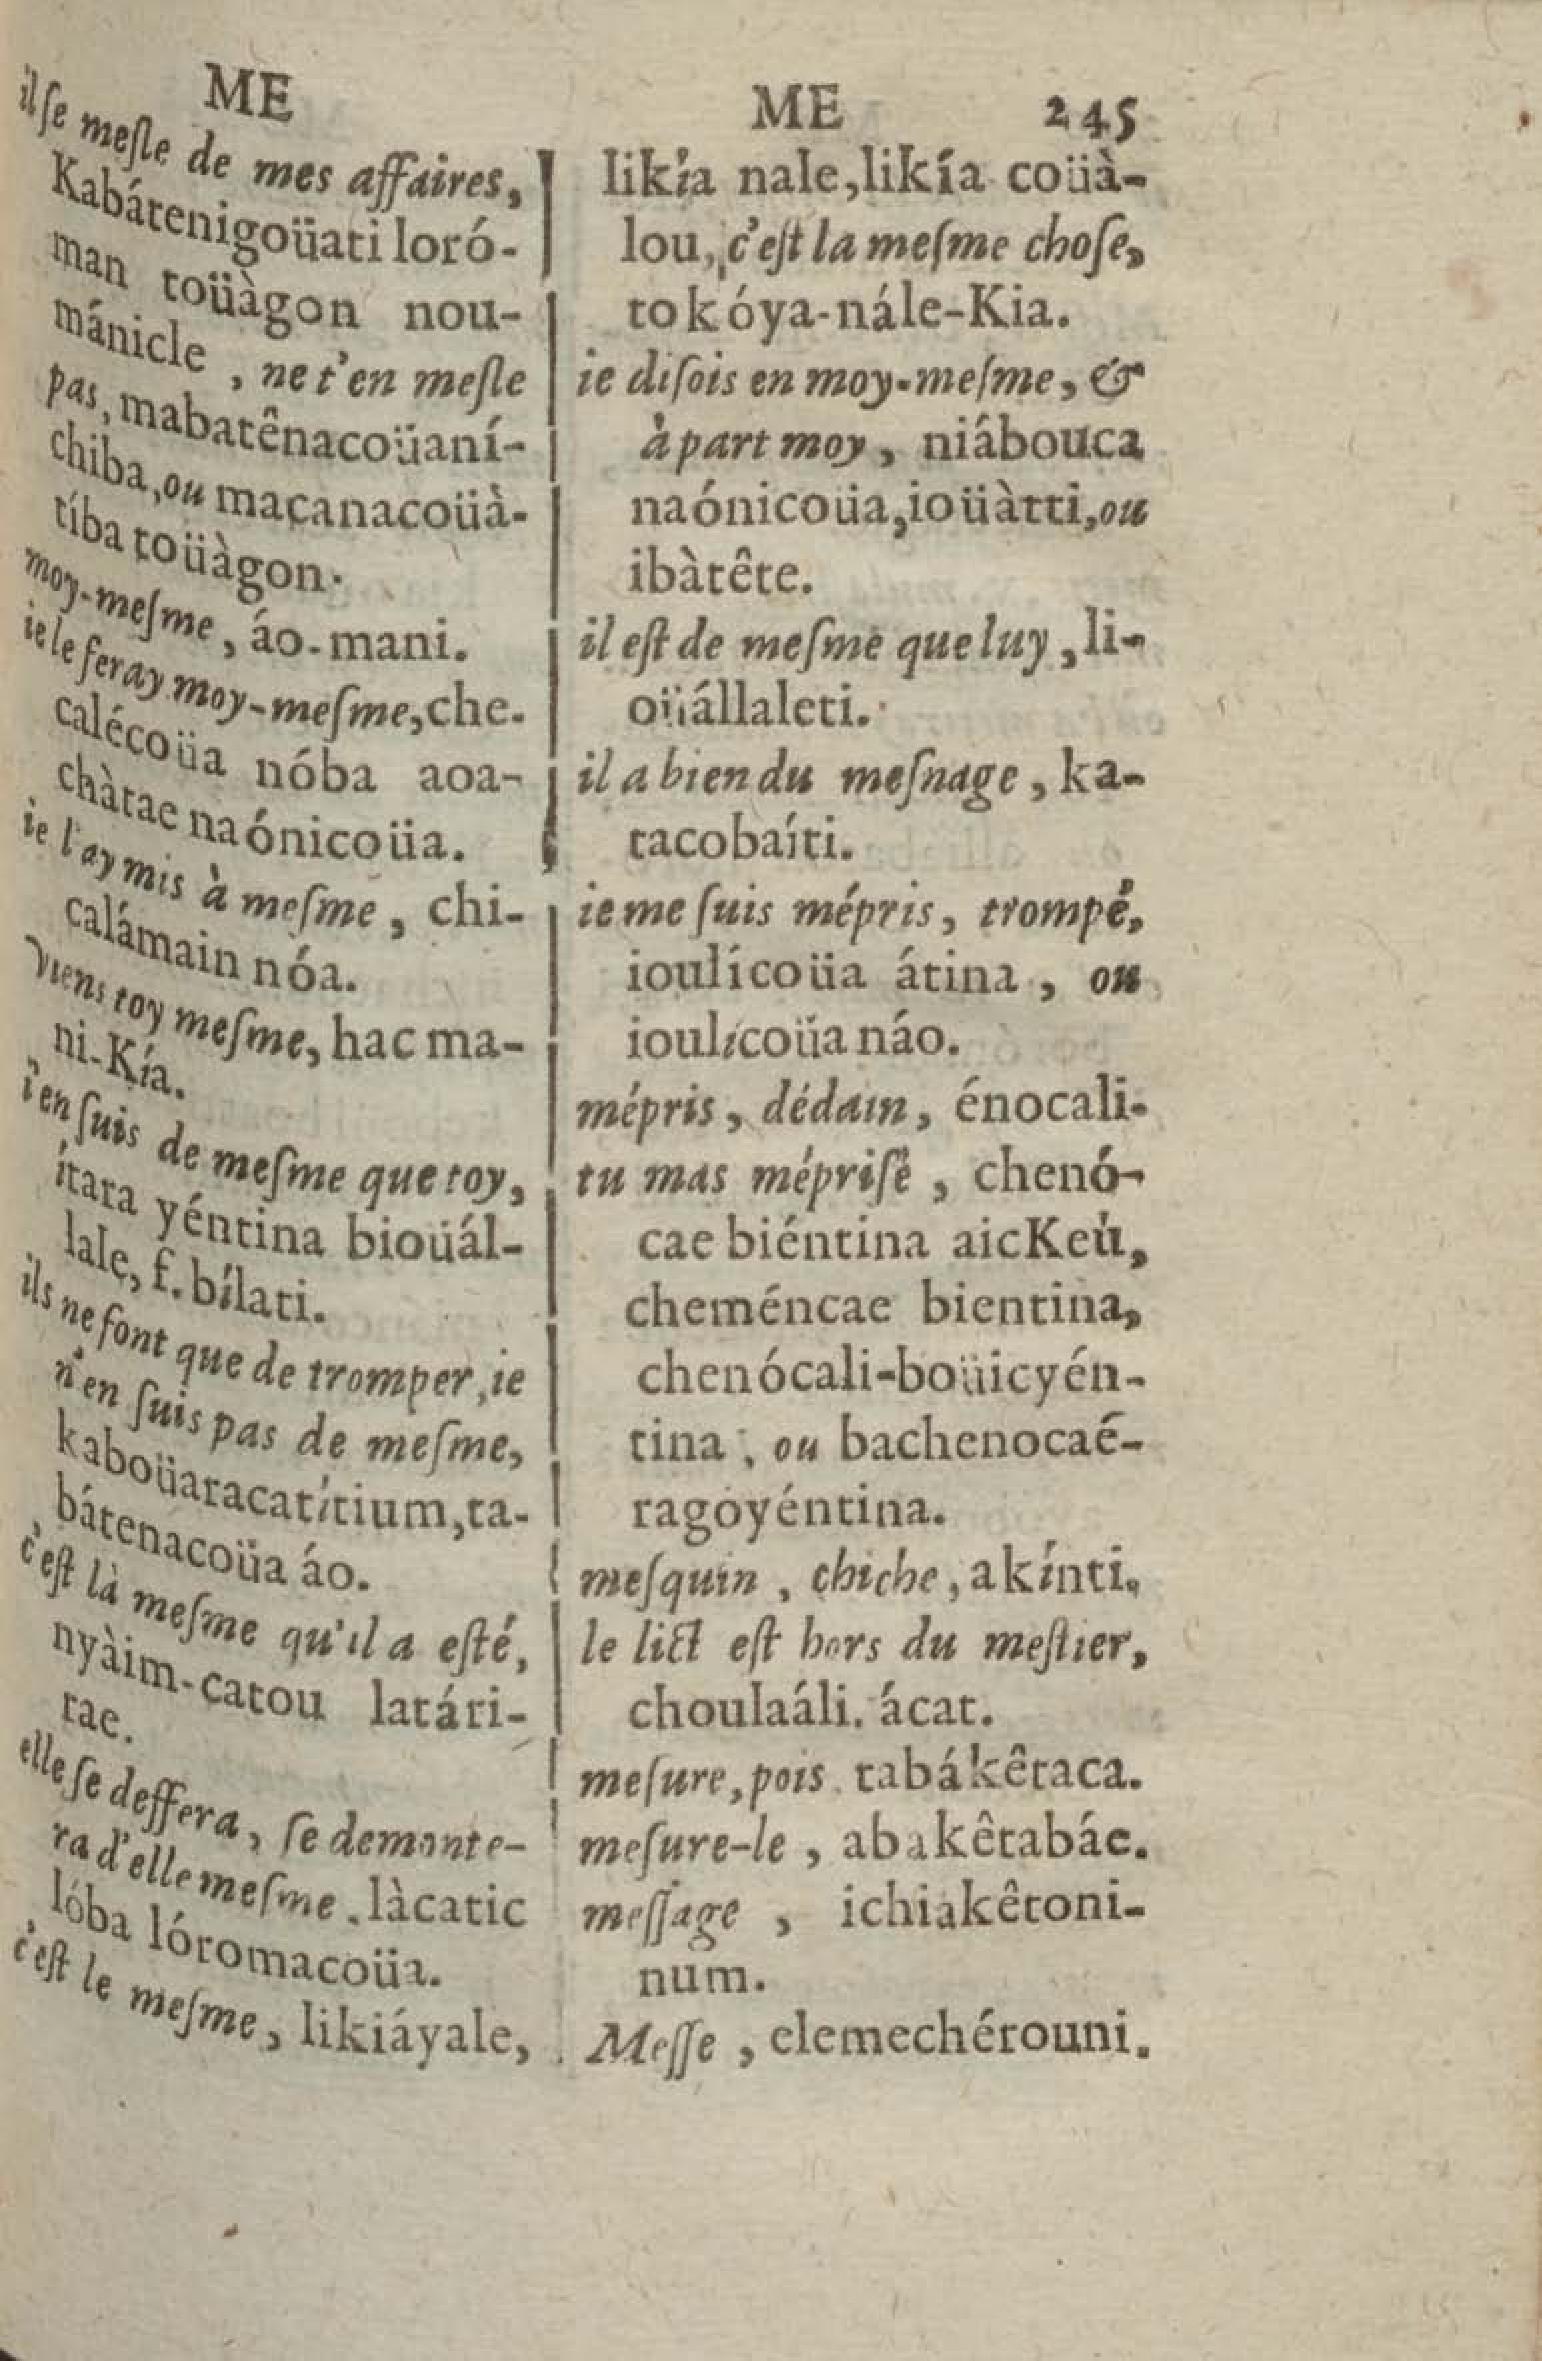 ME
il ſe meſle de mes affaires,
Kabátenigoüati loró-
man toüàgon nou-
mánicle, ne t'en meſle
pas, mabatênacoüaní-
chiba, ou maçanacoüà-
tíba toüàgon.
moy-meſme, áo-mani.
ie le feray moy-meſme, che-
calécoüa nóba aoa-
chàtae naónicoüa.
ie l'ay mis à meſme, chi-
calámain nóa.
Viens toy meſme, hac ma-
ni-Kía.
i'en ſuis de meſme que toy,
ítara yéntina bioüál-
lale, f. bílati.
ils ne font que de tromper, ie
n'en ſuis pas de meſme,
kaboüaracatítium, ta-
bátenacoüa áo.
c'eſt là meſme qu'il a eſté,
nyàim-catou latári-
tae.
elle ſe deffera, ſe demonte-
ra d'elle meſme, làcatic
lóba lóromacoüa.
c'eſt le meſme, likiáyale,
ME 245
likía nale, likía coüà-
lou, c'eſt la meſme choſe,
tokóya-nále-Kia.
ie diſois en moy-meſme, &
à part moy, niábouca
naónicoüa, ioüàtti, ou
ibàtête.
il eſt de meſme que luy, li-
oüállaleti.
il a bien du meſnage, ka-
tacobaíti.
ie me ſuis mépris, trompé,
ioulícoüa átina, ou
ioulicoüa náo.
mépris, dédain, énocali-
tu mas mépriſé, chenó-
cae biéntina aicKeù,
cheméncae bientina,
chenócali-boüicyén-
tina, ou bachenocaé-
ragoyéntina.
meſquin, chiche, akínti.
le lict eſt hors du meſtier,
choulaáli. ácat.
meſure, pois tabákêtaca.
meſure-le, abakêtabáe.
meſſage, ichiakêtoni-
num.
Meſſe, elemechérouni.